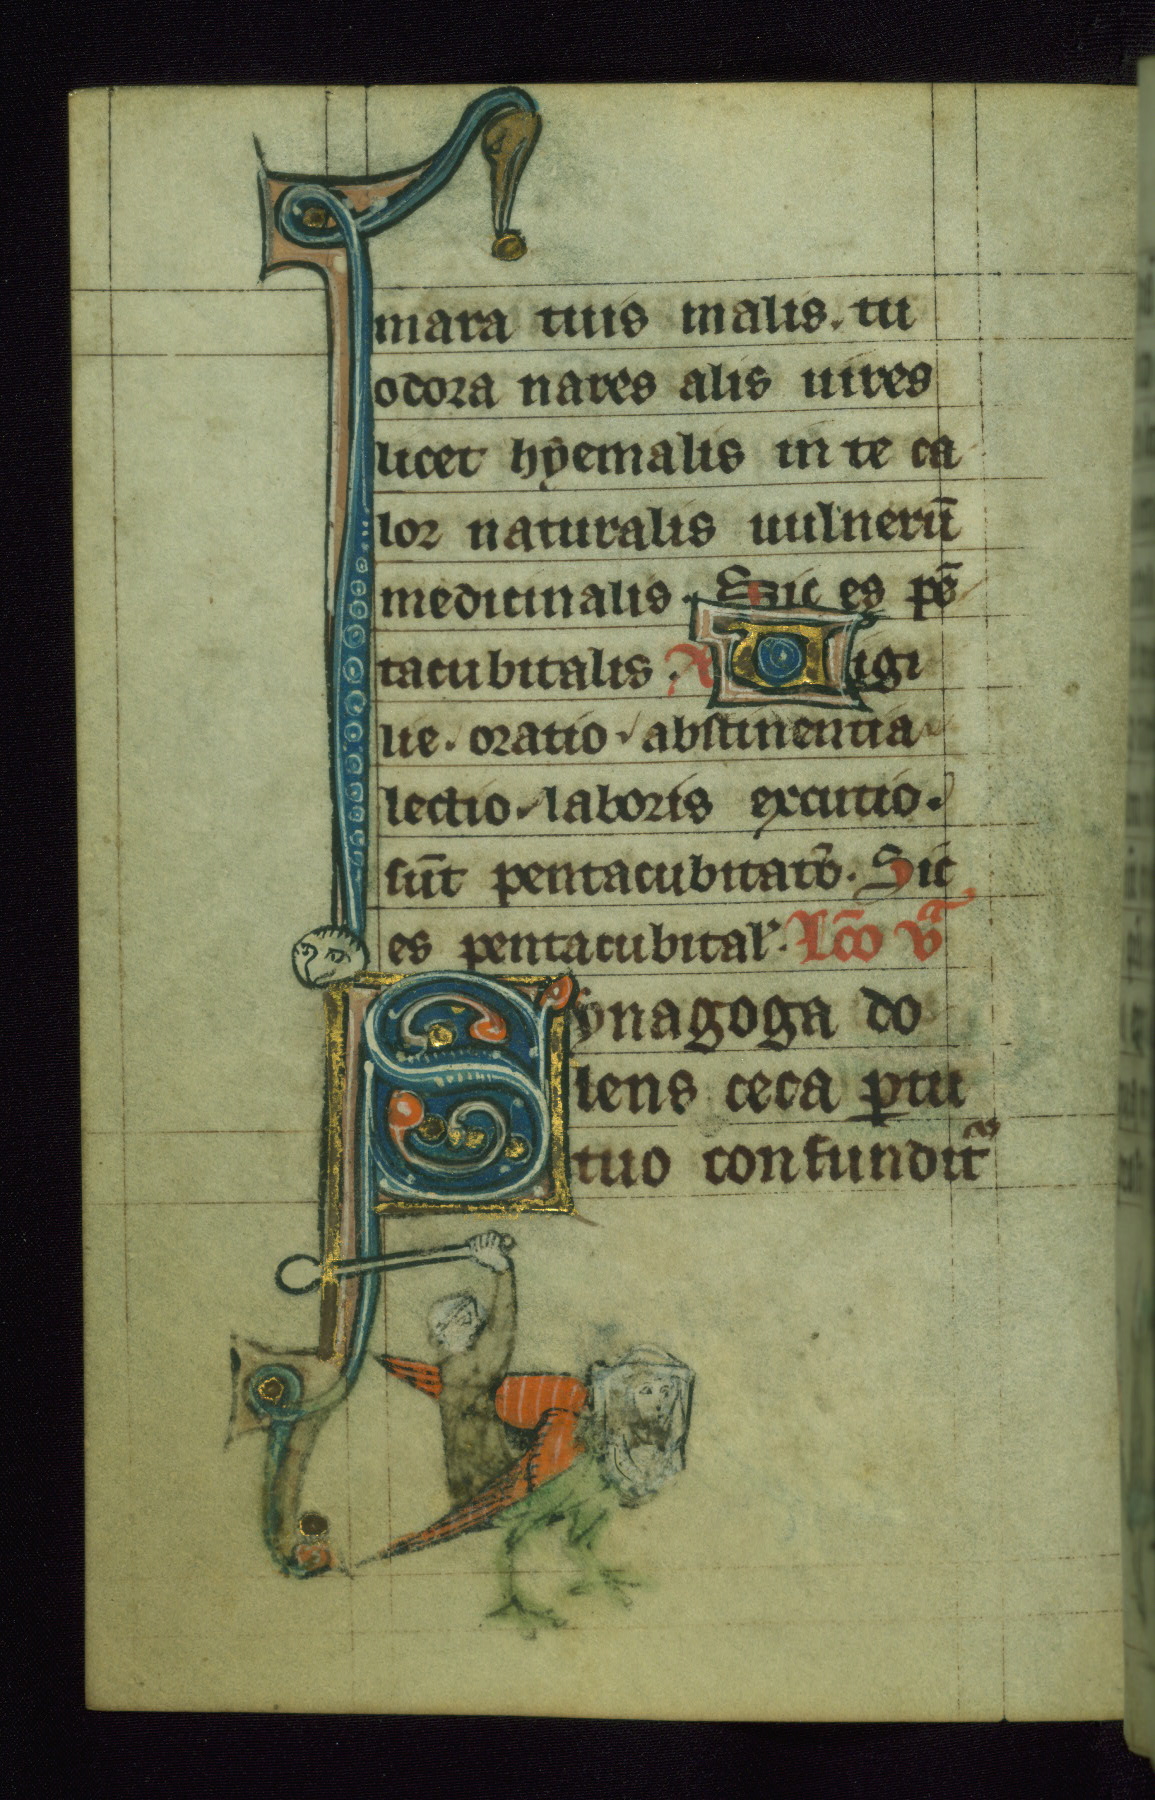 mara tuis malis. tu
odora nares alis uires
licet hyemalis in te ca
lor naturalis uulnerū
medicinalis. Sic es pē
tacubitalis. Vigi
lie. oratio abstinentia
lectio laboris excutio.
sūt pentacubitat᷑o. Sic
es pentacubital᷑. Lc̄o v̄ᵃ
Synagoga do
lens ceca ꝑtu
tuo confundit᷑